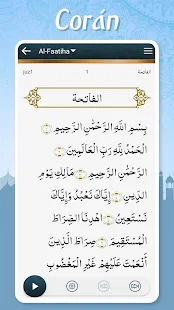 Corán
Al-Faatiha
juz1 1 الفاتحة
الفاتحة
بِسْمِ اللَّهِ الرَّحْمَٰنِ الرَّحِيمِ ١
الْحَمْدُ لِلَّهِ رَبِّ الْعَالَمِينَ ٢
الرَّحْمَٰنِ الرَّحِيمِ ٣ مَالِكِ يَوْمِ
الدِّينِ ٤ إِيَّاكَ نَعْبُدُ وَإِيَّاكَ
نَسْتَعِينُ ٥ اهْدِنَا الصِّرَاطَ
الْمُسْتَقِيمَ ٦ صِرَاطَ الَّذِينَ
أَنْعَمْتَ عَلَيْهِمْ غَيْرِ الْمَغْضُوبِ